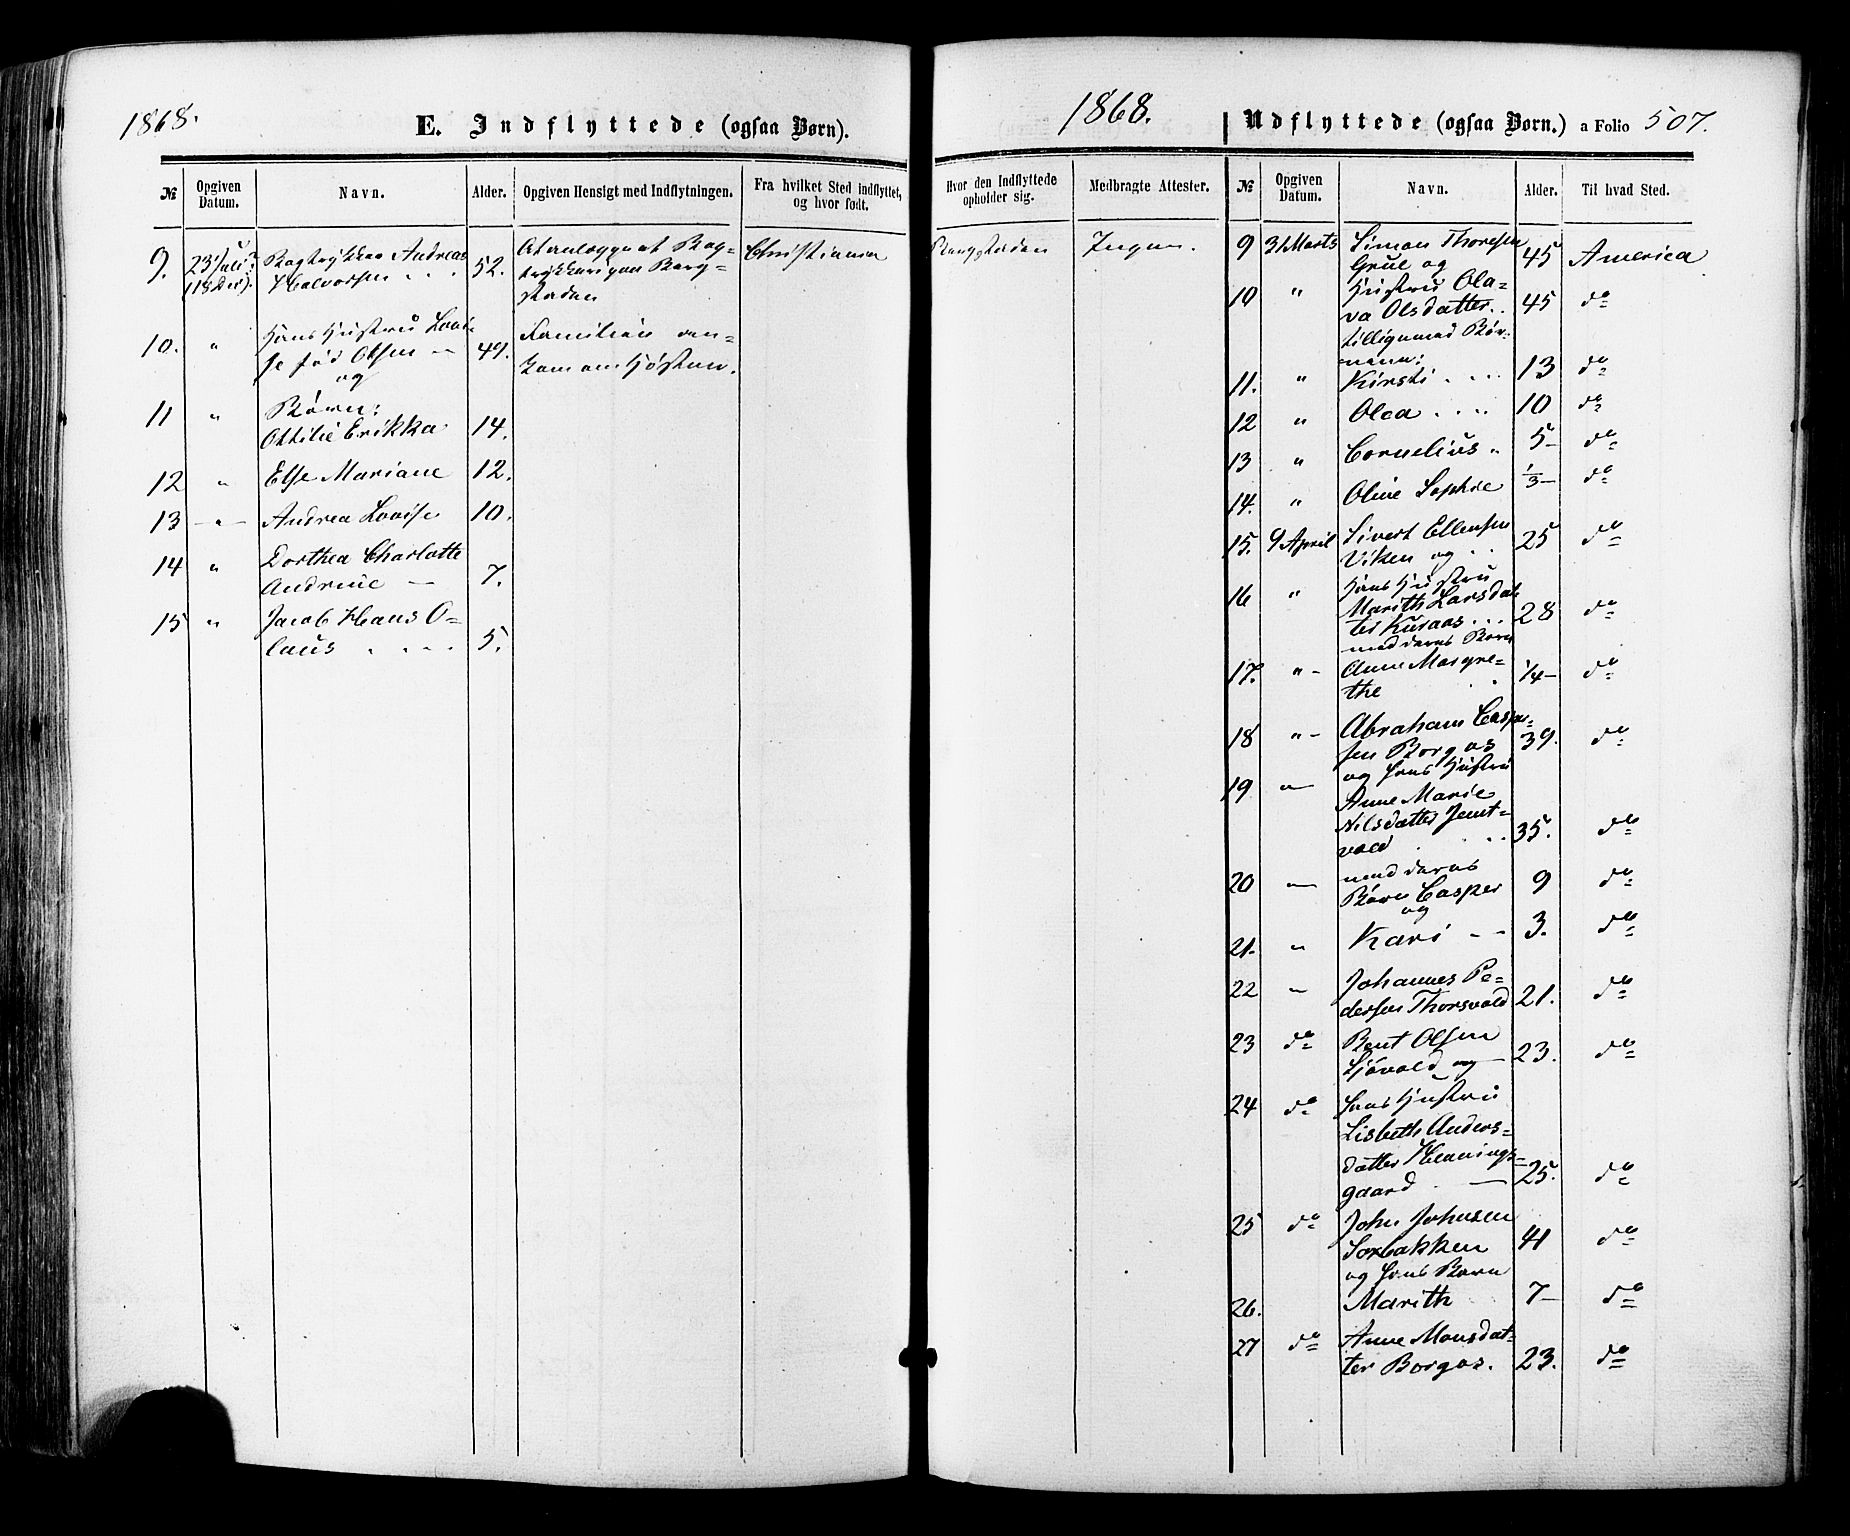 1868.
E. Indflyttede (ogsaa Børn).
№
Opgiven Datum.
Navn.
Alder.
Opgiven Hensigt med Indflytningen.
Fra hvilket Sted indflyttet, og hvor født.
9. 23 Juli Bogtrykker Andreas
Halvorsen 52. At anlægge et Bog-
trykkeri paa Berg-
staden Christiania
10. " Hans Hustru Lovi-
se fød Olsen — 49. Familien an-
kom om Høsten.
og
11 " Børn:
Ottilie Erikka 14.
12 " Else Mariane 12.
13 — " — Andrea Lovise 10.
14 " Dorthea Charlotte
Andrine — 7.
15 " Jacob Hans O-
laus . . . . 5.
1868.
Hvor den Indflyttede opholder sig.
Medbragte Attester.
Bergstaden Ingen.
Udflyttede (ogsaa Børn.) a Folio 507.
№
Opgiven Datum.
Navn.
Alder.
Til hvad Sted.
9 31 Marts Simon Thoresen
Grue og 45 America
10 " Hustru Ola-
va Olsdatter . . 45 do
tilligemed Bør-
nene:
11. " Kirsti . . . . 13 do
12 " Olea . . . . 10 do
13 " Cornelius " 5- do
14. " Oline Sophie 1/3- do
15. 9 April Sivert Ellensen
Viken og . . 25 do
16 " Hans Hustru
Marith Larsdat
ter . . . 28 do
med deres Barn
17. " - Anne Margre-
the 1/4- do
18 " - Abraham Casper-
sen Borgos 39. do
19 — og hans Hustru
Anne Marie
Nilsdatter Jemt-
vold . . . 35. do
20 — med deres
Børn Casper 9 do
og
21. " Kari - - 3. do
22 " Johannes Pe-
dersen Thorsvold 21. do
23 do Bent Olsen
Sjøvold og — 23. do
24 do hans Hustru
Lisbeth Anders-
datter Hennings-
gaard — 25. do
25 do John Johnsen
Sorbakken 41 do
og hans Barn
26. Marith 7- do
27 do Anne Monsdat-
ter Borgos. 23. do